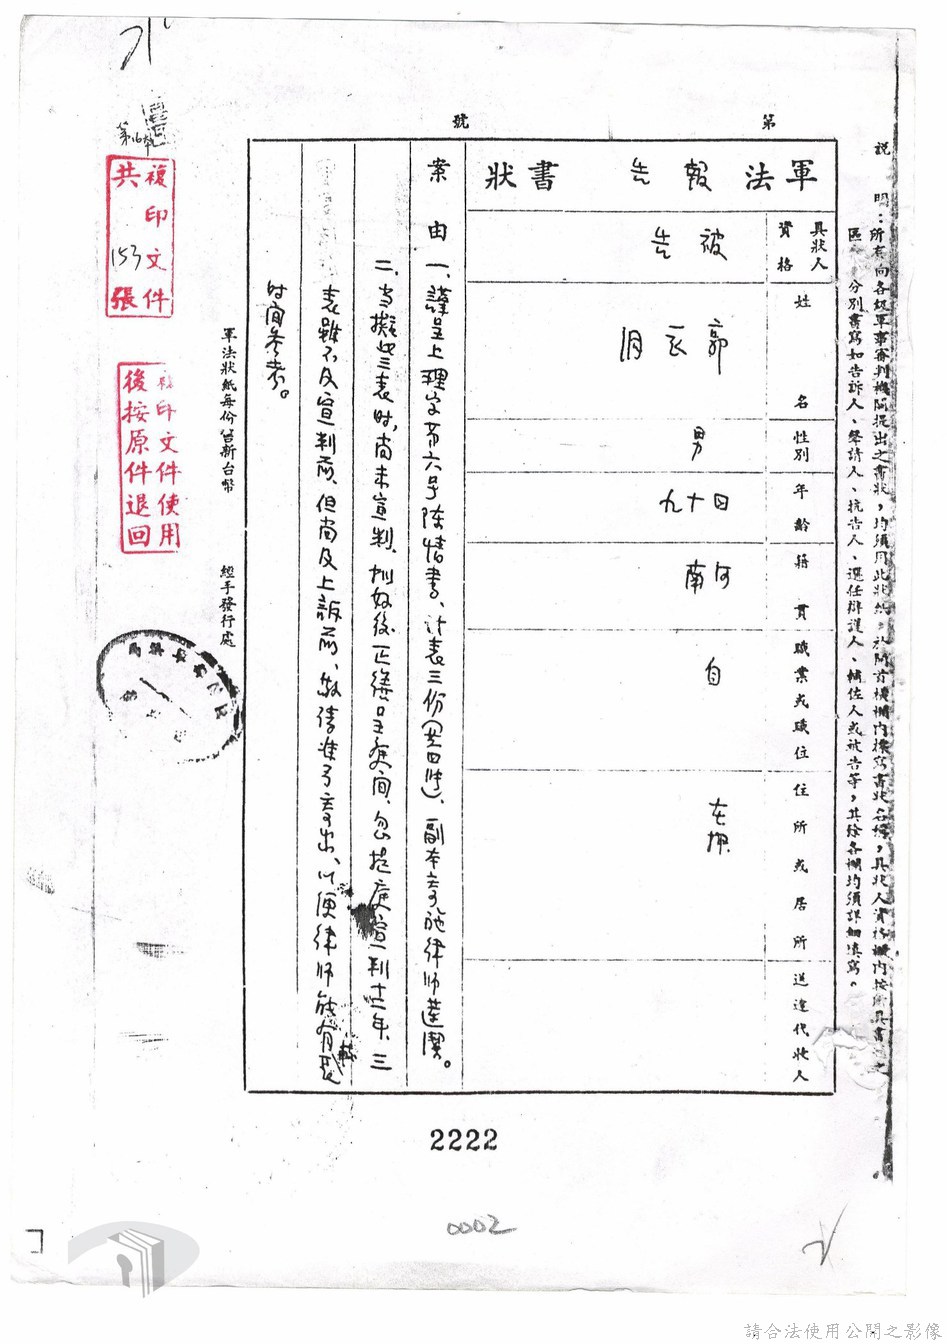 第 號
說 明：所有向各級軍事審判機關提出之書狀，均須用此狀紙
區 分別書寫如告訴人、聲請人、抗告人、選任辯護人、輔佐人或被告等，其餘各欄均須詳細填寫。
軍法 報告 書狀
具狀人資格 被告
姓名 郭衣洞
性別 男
年齡 四十九
籍貫 河南
職業或職位 自
住所或居所 在押
送達代收人
案由
一、謹呈上理字第六号陈情書、计表三份(共四件)、副本寄施律师蓮潔。
二、当擬此三表时，尚未宣判、抄好後正繕呈文间、忽提庭宣判十二年、三
表雖不及宣判前、但尚及上訴前、敬请准予寄出、以便律师能有較
时间参考。
軍法狀紙每份 新台幣 經手發行處
第16卷
複印文件
共153張
複印文件使用
後按原件退回
2222
0002
請合法使用公開之影像